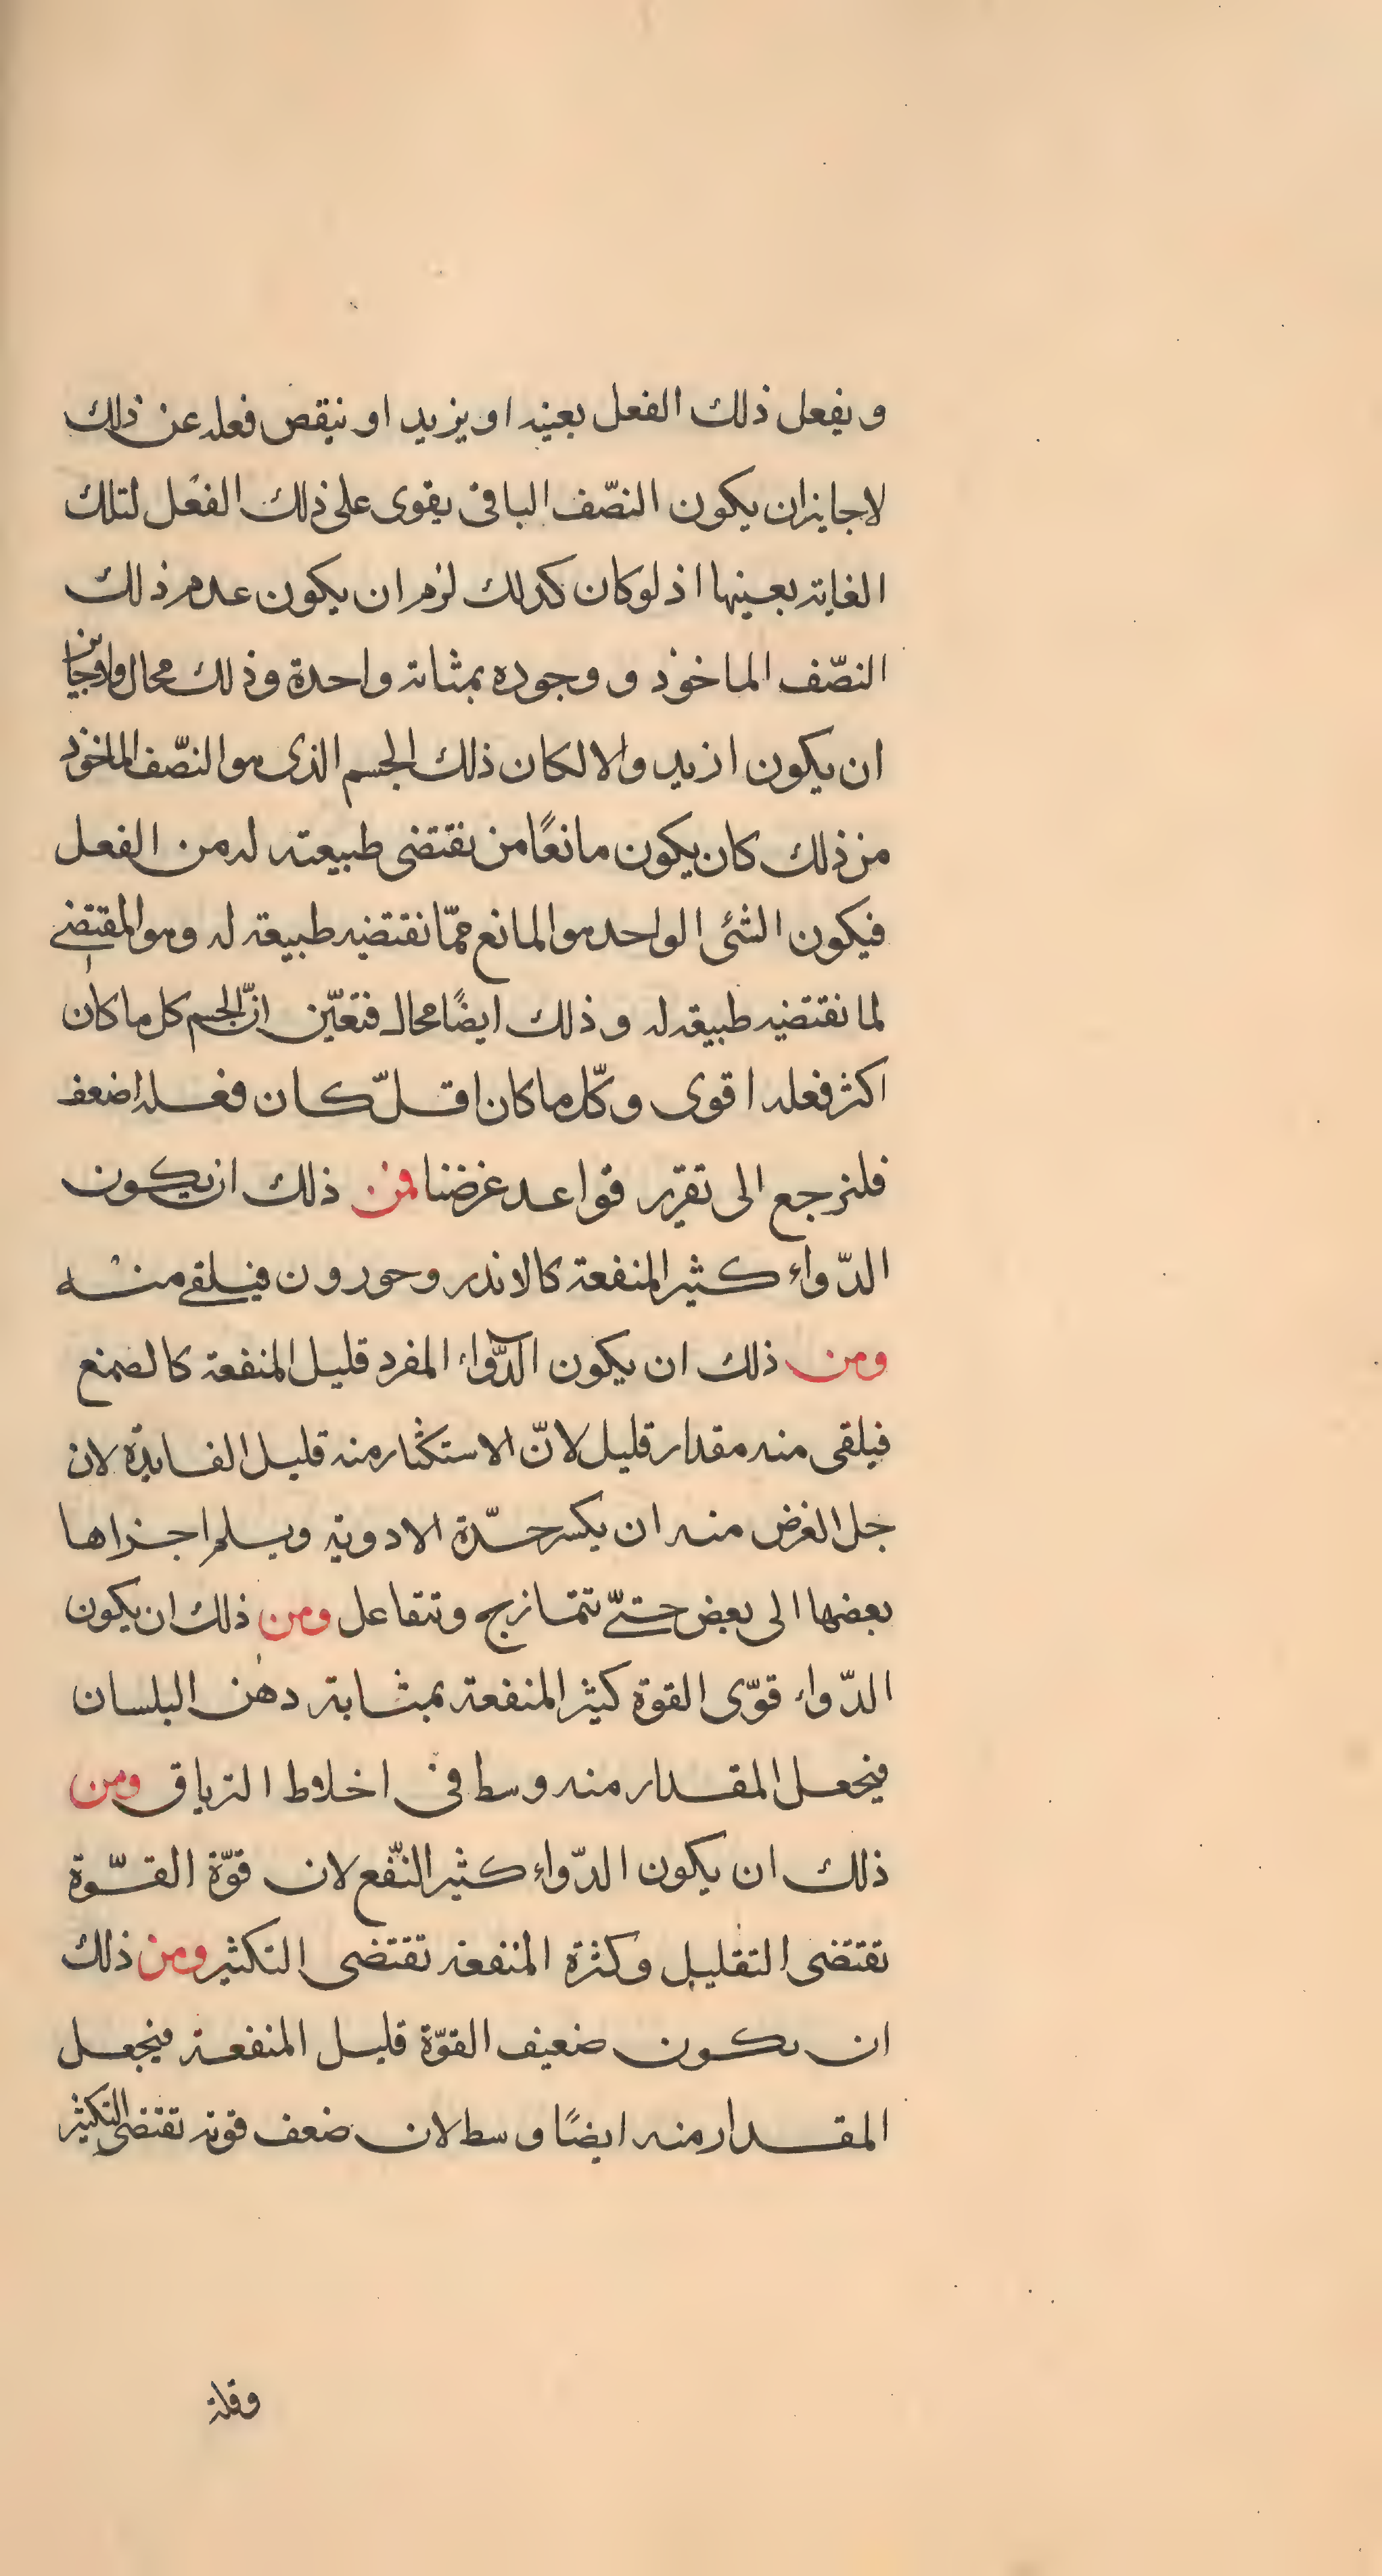 ويفعل ذلك الفعل بعينه او يزيد او ينقص فعله عن ذلك
لاجايزان يكون النصّف الباقى يقوى على ذلك الفعل لتلك
الغاية بعينها اذ لوكان كذلك لزم ان يكون عدم ذلك
النصّف الماخوذ ووجوده بمثابة واحدة وذلك محال ولاوجايز
ان يكون ازيد والا لكان ذلك الجسم الذى هو النصّف الماخوذ
من ذلك كان يكون مانعًا من نقتضى طبيعته له من الفعل
فيكون الشئى الواحد هو المانع ممّا نقتضيه طبيعته له وهو المقتضى
لما نقتضيه طبيعته له وذلك ايضًا محال فتعيّن انّ الجسم كل ما كان
اكثر فعله اقوى وكّل ما كان اقلّ كان فعله اضعف
فلنرجع الى تقرير قواعد غرضنا فمن ذلك ان يكون
الدّواء كثير المنفعة كالاندروحورون فيلقى منه
ومن ذلك ان يكون الدّواء المفرد قليل المنفعة كالصمغ
فيلقى منه مقدار قليل لانّ الاستكثار منه قليل الفايدة لان
جل الغرض منه ان يكسر حدّة الادوية ويسلم اجزاها
بعضها الى بعض حتىّ تتمازج وتتفاعل ومن ذلك ان يكون
الدّواء قوّى القوة كثير المنفعة بمثابة دهن البلسان
فيجعل المقدار منه وسط فى اخلاط الترياق ومن
ذلك ان يكون الدّواء كثير النفّع لان قوّة القوّة
تقتضى التقليل وكثرة المنفعة تقتضى التكثير ومن ذلك
ان يكون ضعيف القوّة قليل المنفعة فيجعل
المقدار منه ايضًا وسط لان ضعف قوته تقتضى التكثير
وقلة